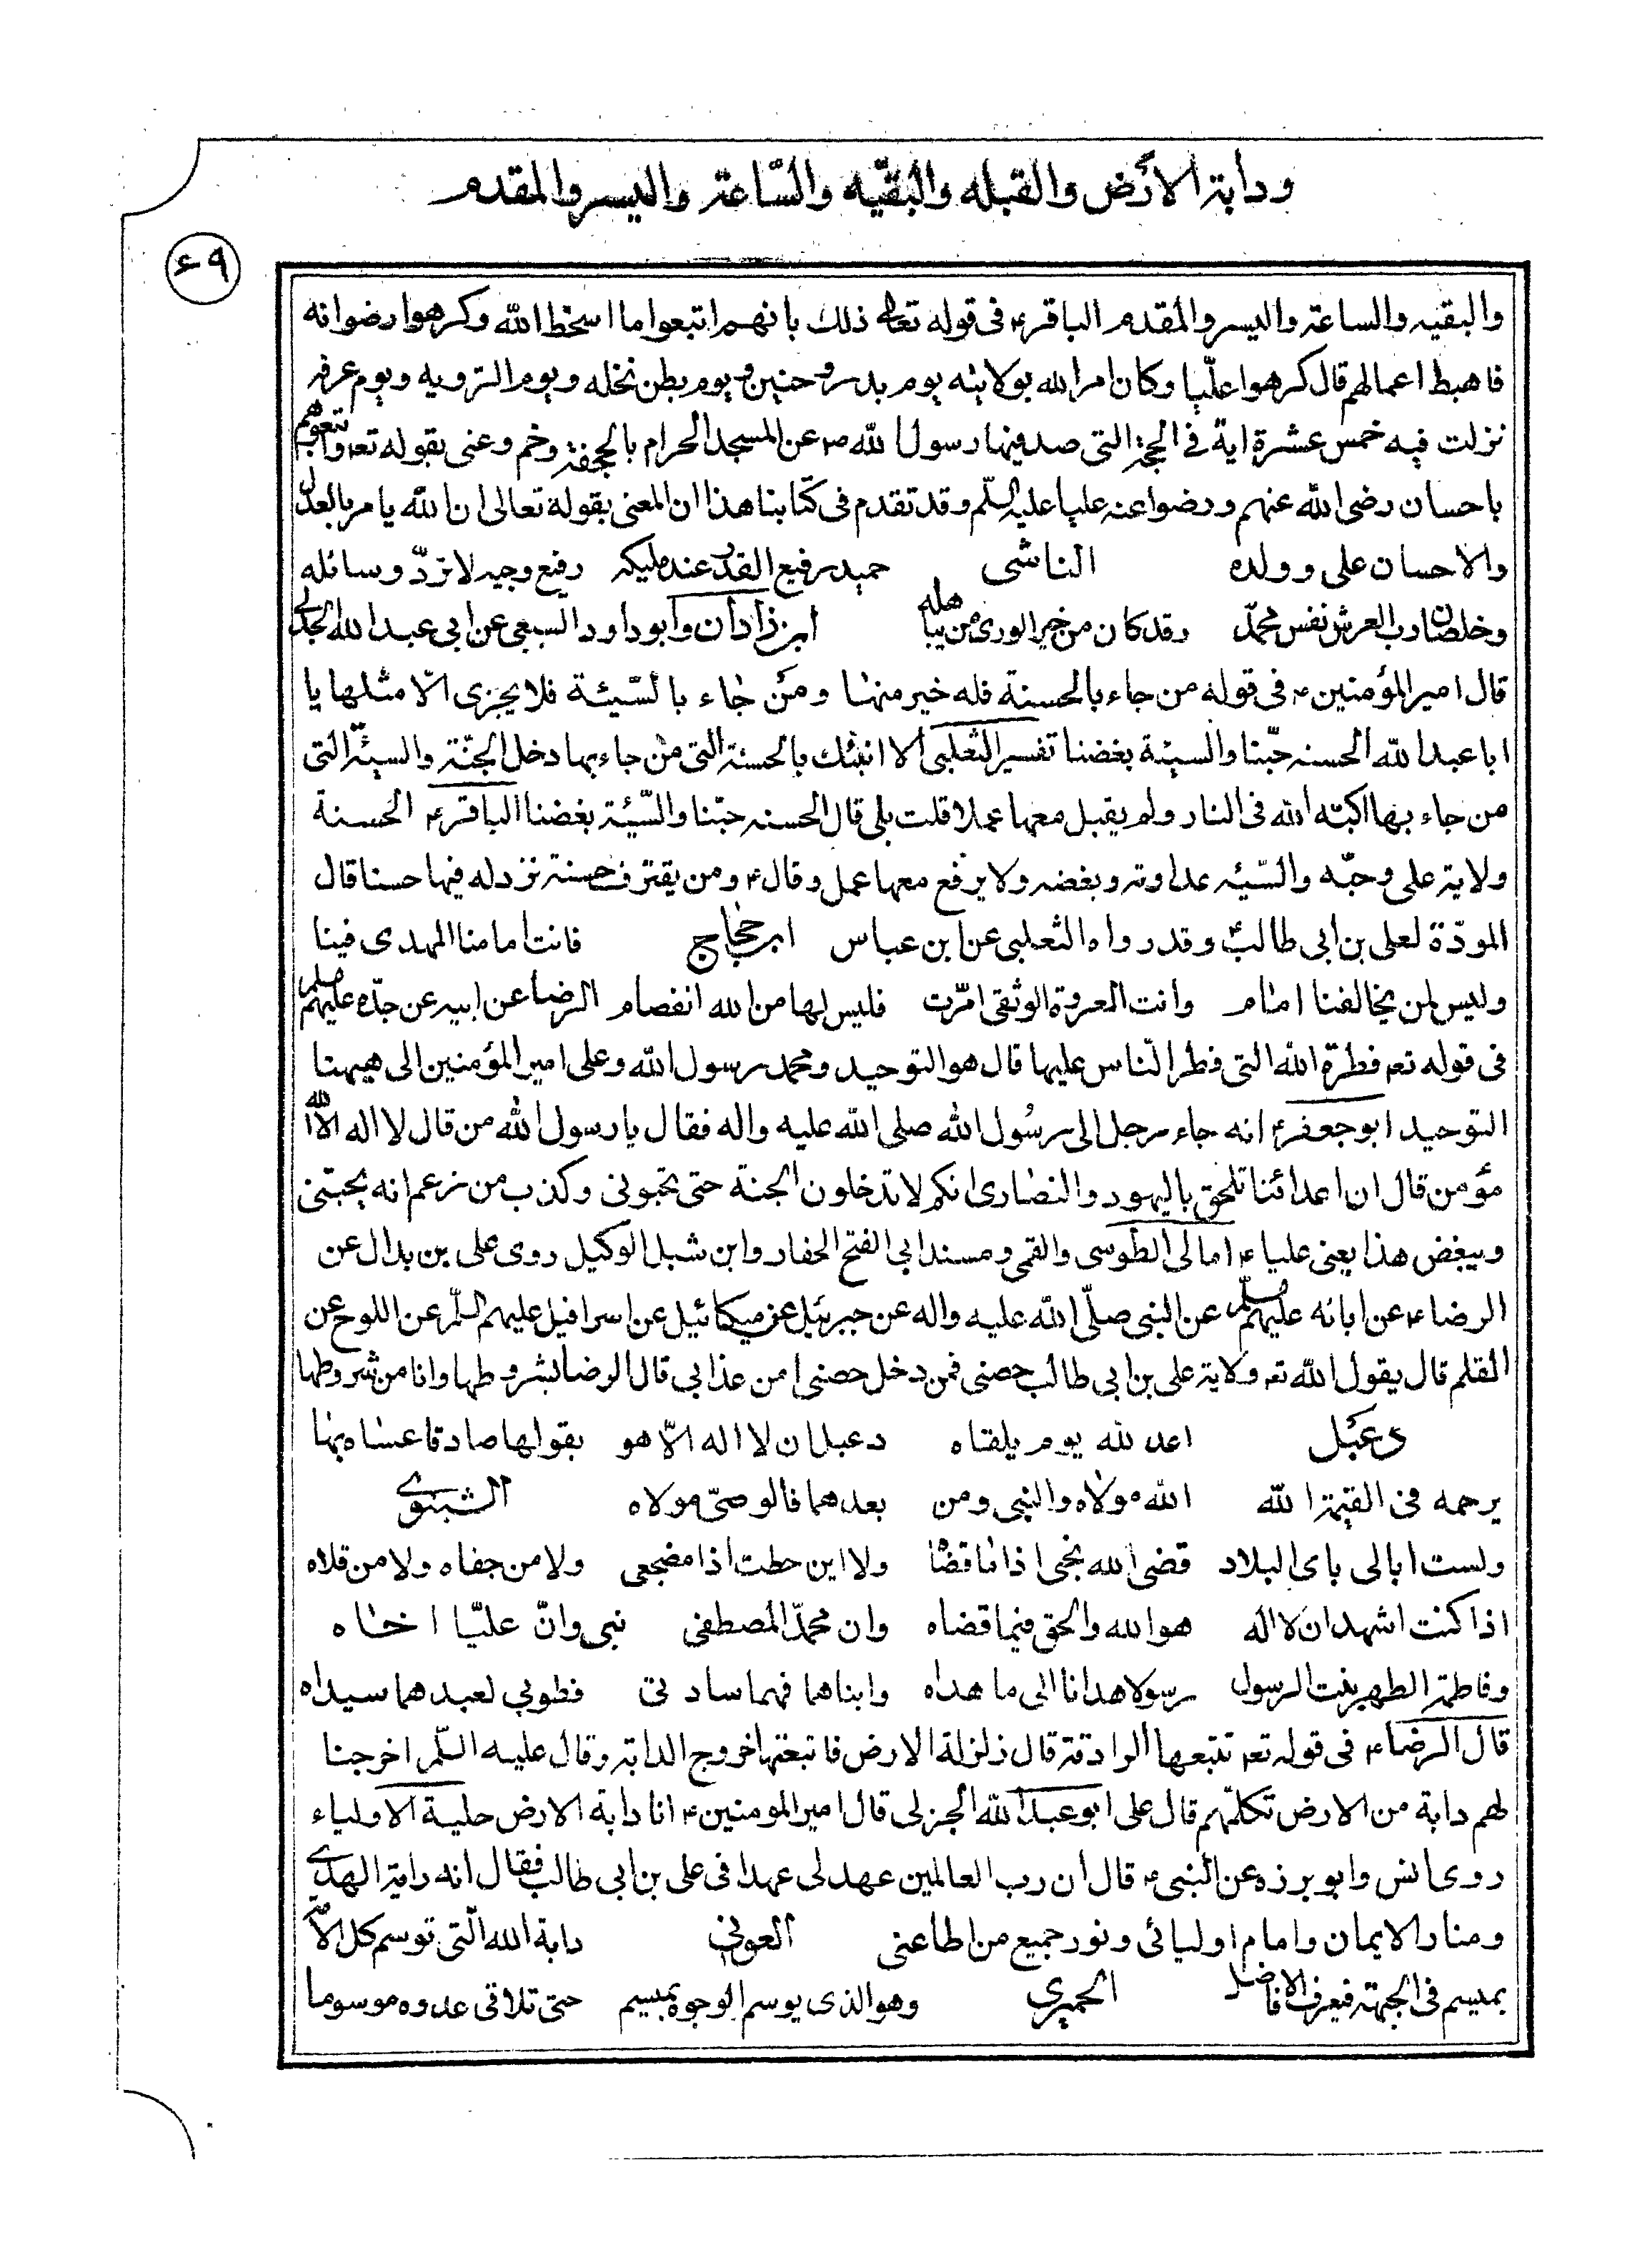 ودابة الأرض والقبله والبقيّه والسّاعة واليسر والمقدم
٦٩
والبقيه والساعة واليسر والمقدم الباقر ع فى قوله تعالى ذلك بانهم اتبعوا ما اسخط الله وكرهوا رضوانه
فاهبط اعمالهم قال كرهوا عليّا وكان امر الله بولايته يوم بدر وحنين ويوم بطن نخله ويوم التروية ويوم عرفة
نزلت فيه خمس عشرة اية فى الحجة التى صد فيها رسول الله ص عن المسجد الحرام بالجحفة وخم وعنى بقوله تعه واتبعوهم
باحسان رضى الله عنهم ورضوا عنه عليا عليه السلم وقد تقدم فى كتابنا هذا ان المعنى بقوله تعالى ان الله يامر بالعدل
والاحسان على وولده الناشى حميد رفيع القدر عند مليكه رفيع وجيه لا تردّ وسائله
وخلصان رب العرش نفس محمّد وقد كان من خير الورى من يباهله ابن زادان وابو داود السبعى عن ابى عبد الله الجدلى
قال امير المؤمنين ع فى قوله من جاء بالحسنة فله خير منها ومن جاء بالسّيئة فلا يجزى الّا مثلها يا
ابا عبد الله الحسنه حبّنا والسيئة بغضنا تفسير الثعلبى الا انبئك بالحسنة التى من جاء بها دخل الجنّة والسيئة التى
من جاء بها اكبّه الله فى النار ولم يقبل معها عملا قلت بلى قال الحسنه حبّنا والسّيّئة بغضنا الباقر ع الحسنة
ولاية على وحبّه والسّيّئه عداوته وبغضه ولا يرفع معها عمل وقال ع ومن يقترف حسنة نزد له فيها حسنا قال
المودّة لعلى بن ابى طالب ع وقد رواه الثعلبى عن ابن عباس ابن حجاج فانت امامنا المهدى فينا
وليس لمن يخالفنا امام وانت العروة الوثقى امرّت فليس لها من الله انفصام الرضا عن ابيه عن جدّه عليهم السلم
فى قوله تعه فطرة الله التى فطر النّاس عليها قال هو التوحيد ومحمد رسول الله وعلى امير المؤمنين الى هيهنا
التوحيد ابو جعفر ع انه جاء رجل الى رسُول الله صلى الله عليه واله فقال يا رسول الله من قال لا اله الّا الله
مؤمن قال ان اعدائنا تلحق باليهود والنصارى انكم لا تدخلون الجنة حتى تحبونى وكذب من زعم انه يحبنى
ويبغض هذا يعنى عليا ع امالى الطوسى والقمى ومسند ابى الفتح الحفار وابن شبل الوكيل روى على بن بلال عن
الرضا ع عن ابائه عليهم السلم عن النبى صلّى الله عليه واله عن جبرئيل عن ميكائيل عن اسرافيل عليهم السلم عن اللوح عن
القلم قال يقول الله تعه ولاية على بن ابى طالب حصنى فمن دخل حصنى امن عذابى قال الرضا بشروطها وانا من شروطها
دعبل اعد لله يوم يلقاه دعبل ان لا اله الّا هو يقولها صادقا عساه بها
يرحمه فى القيمة الله الله مولاه والنبى ومن بعدهما فالوصىّ مولاه الشبنوى
ولست ابالى باى البلاد قضى الله نحبى اذا ما قضاه ولا اين حطت اذا مضجعى ولا من جفاه ولا من قلاه
اذا كنت اشهد ان لا اله هو الله والحق فيما قضاه وان محمّد المصطفى نبى وانّ عليّا اخاه
وفاطمة الطهر بنت الرسول رسولا هدانا الى ما هداه وابناهما فهما سادتى فطوبى لعبد هما سيداه
قال الرضا ع فى قوله تعه تتبعها الرادفة قال زلزلة الارض فاتبعتها خروج الدابة وقال عليه السلم اخرجنا
لهم دابة من الارض تكلّمهم قال على ابو عبد الله الجدلى قال امير المومنين ع انا دابة الارض حلية الاولياء
روى انس وابو برزه عن النبى ع قال ان رب العالمين عهد لى عهدا فى على بن ابى طالب فقال انه راية الهدى
ومنار الايمان وامام اوليائى ونور جميع من اطاعنى العونى دابة الله الّتى توسم كل الا
بميسم فى الجبهة فيعرف الافاضل الحميرى وهو الذى يوسم الوجوه بميسم حتى تلاقى عدوه موسوما